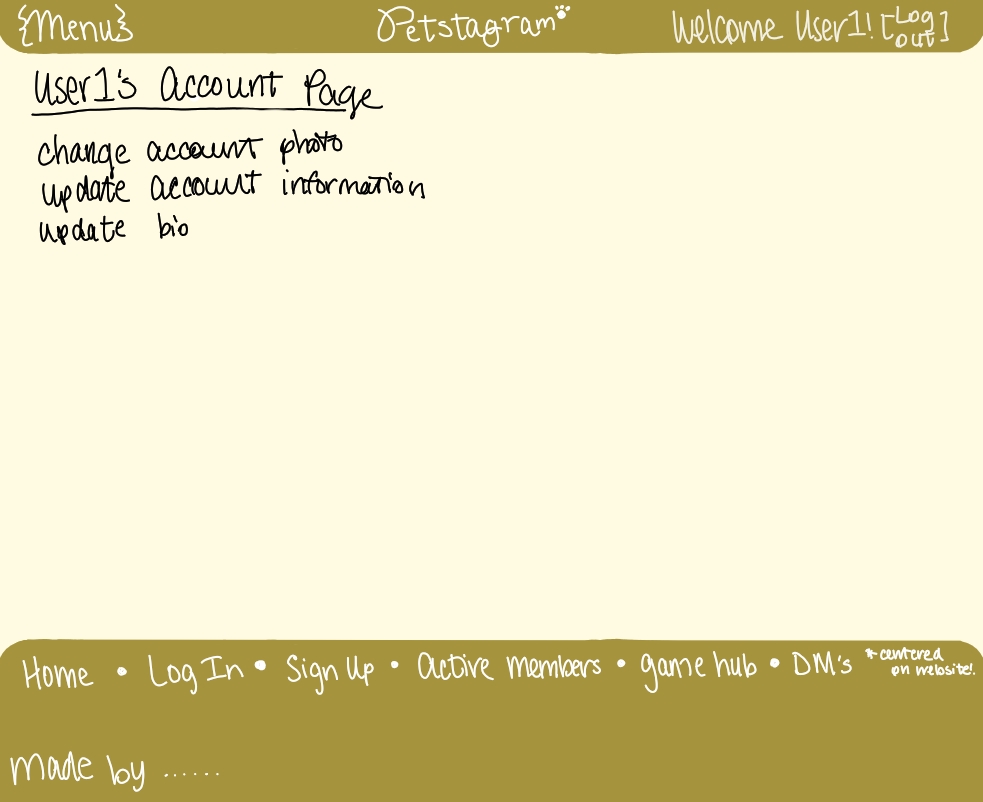 {Menu}
Petstagram
Welcome User1! [Log out]
User1's Account Page
change account photo
update account information
update bio
Home • Log In • Sign Up • Active members • game hub • DM's
*centered
on website!
Made by ......